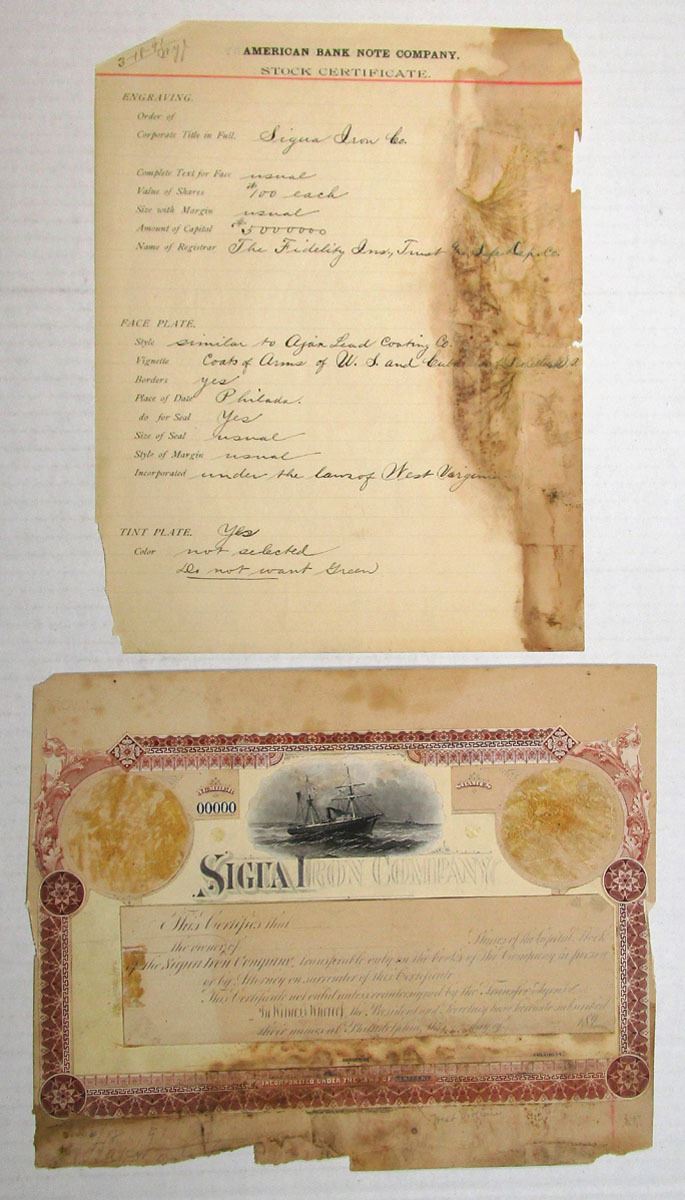 3-18-91
AMERICAN BANK NOTE COMPANY.
STOCK CERTIFICATE.
ENGRAVING.
Order of
Corporate Title in Full. Sigua Iron Co.
Complete Text for Face usual
Value of Shares $100 each
Size with Margin usual
Amount of Capital $5000000
Name of Registrar The Fidelity Ins., Trust & Safe Dep. Co.
FACE PLATE.
Style similar to Ajax Lead Coating Co.
Vignette Coats of Arms of U. S. and Cuba
Borders yes
Place of Date Philada.
do for Seal Yes
Size of Seal usual
Style of Margin usual
Incorporated under the laws of West Virginia
TINT PLATE. Yes
Color not selected
Do not want Green
NUMBER
SHARES
00000
SIGUA IRON COMPANY
This Certifies that
the owner of Shares of the Capital Stock
of the Sigua Iron Company, transferable only on the books of the Company in person
or by Attorney on surrender of this Certificate.
This Certificate not valid unless countersigned by the Transfer Agent
In Witness Whereof, the President and Secretary have hereunto subscribed
their names at Philadelphia, this day of 189
INCORPORATED UNDER THE LAWS OF